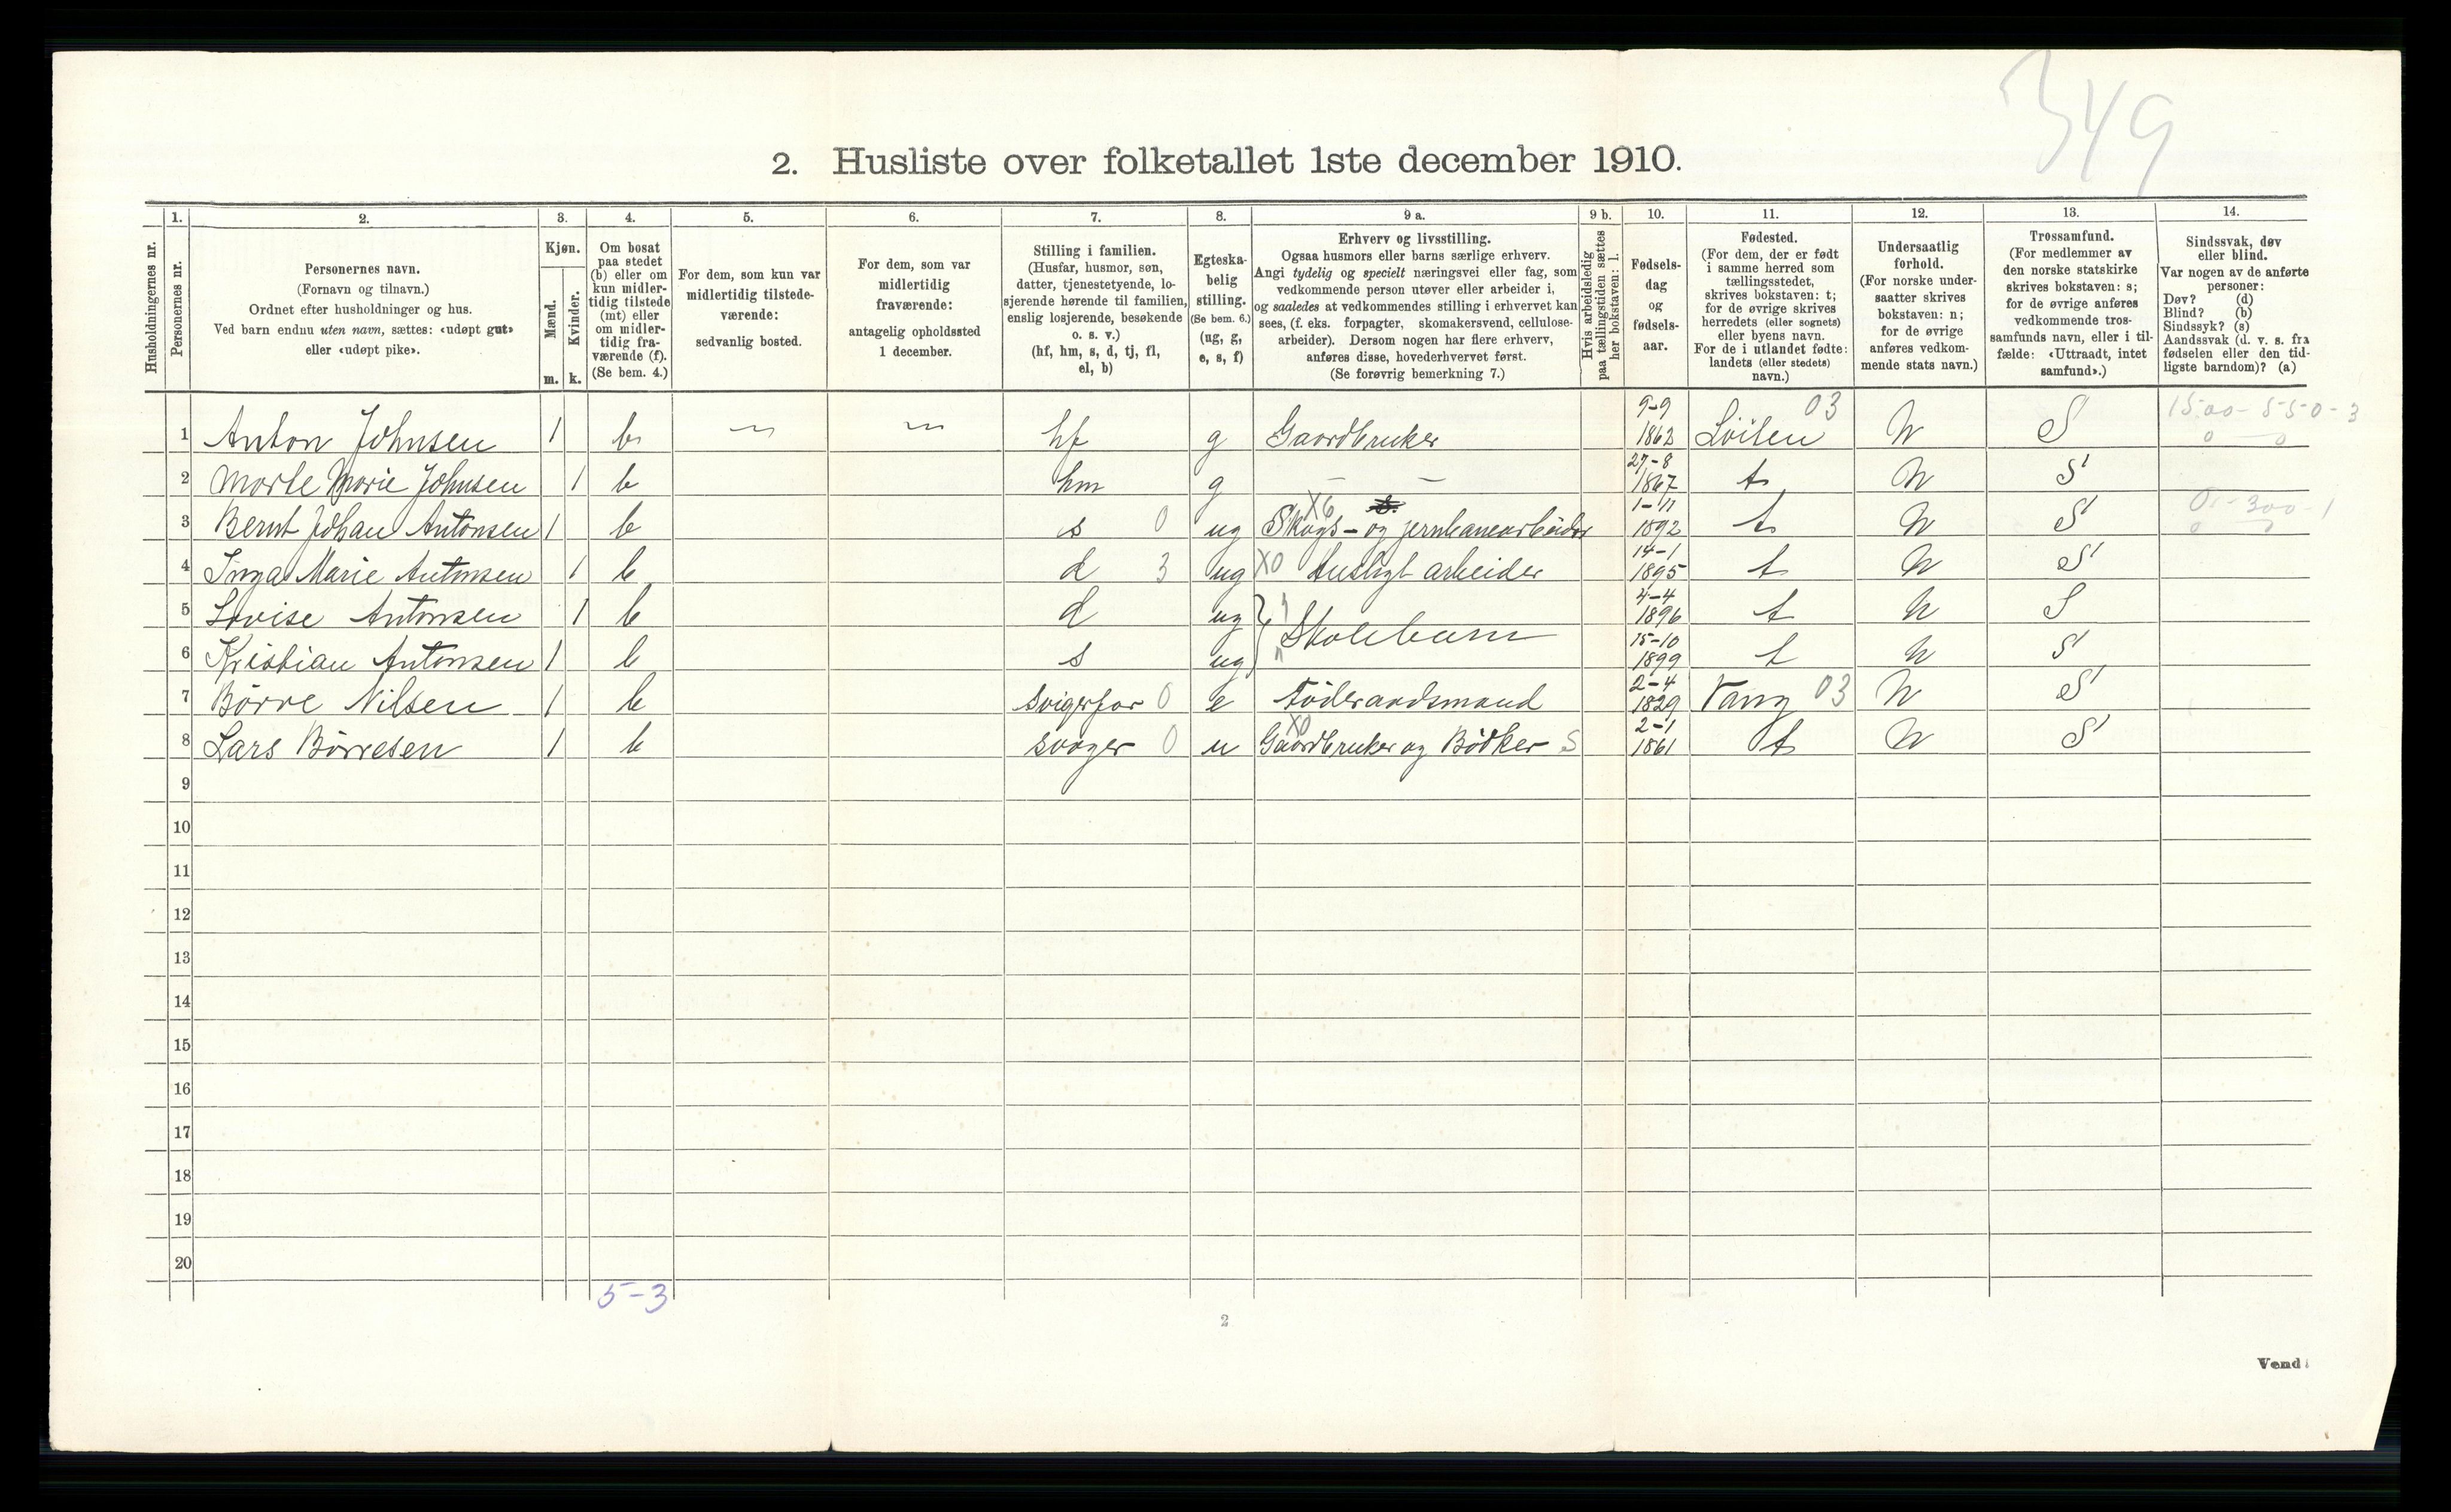 349
2. Husliste over folketallet 1ste december 1910.
Husholdningernes nr.
1. Personernes nr.
2. Personernes navn. (Fornavn og tilnavn.) Ordnet efter husholdninger og hus. Ved barn endnu uten navn, sættes: «udøpt gut» eller «udøpt pike».
3. Kjøn. Mænd. m. Kvinder. k.
4. Om bosat paa stedet (b) eller om kun midlertidig tilstede (mt) eller om midlertidig fraværende (f). (Se bem. 4.)
5. For dem, som kun var midlertidig tilstedeværende: sedvanlig bosted.
6. For dem, som var midlertidig fraværende: antagelig opholdssted 1 december.
7. Stilling i familien. (Husfar, husmor, søn, datter, tjenestetyende, losjerende hørende til familien, enslig losjerende, besøkende o. s. v.) (hf, hm, s, d, tj, fl, el, b)
8. Egteskabelig stilling. (Se bem. 6.) (ug, g, e, s, f)
9 a. Erhverv og livsstilling. Ogsaa husmors eller barns særlige erhverv. Angi tydelig og specielt næringsvei eller fag, som vedkommende person utøver eller arbeider i, og saaledes at vedkommendes stilling i erhvervet kan sees, (f. eks. forpagter, skomakersvend, cellulosearbeider). Dersom nogen har flere erhverv, anføres disse, hovederhvervet først. (Se forøvrig bemerkning 7.)
9 b. Hvis arbeidsledig paa tællingstiden sættes her bokstaven: l.
10. Fødselsdag og fødselsaar.
11. Fødested. (For dem, der er født i samme herred som tællingsstedet, skrives bokstaven: t; for de øvrige skrives herredets (eller sognets) eller byens navn. For de i utlandet fødte: landets (eller stedets) navn.)
12. Undersaatlig forhold. (For norske undersaatter skrives bokstaven: n; for de øvrige anføres vedkommende stats navn.)
13. Trossamfund. (For medlemmer av den norske statskirke skrives bokstaven: s; for de øvrige anføres vedkommende trossamfunds navn, eller i tilfælde: «Uttraadt, intet samfund».)
14. Sindssvak, døv eller blind. Var nogen av de anførte personer: Døv? (d) Blind? (b) Sindssyk? (s) Aandssvak (d. v. s. fra fødselen eller den tidligste barndom)? (a)
1 Anton Johnsen 1 b hf g Gaardbruker 9-9 1862 Löiten 03 N S 1500-550-3 0 0
2 Marte Marie Johnsen 1 b hm g — — 27-8 1867 t N S
3 Bernt Johan Antonsen 1 b s 0 ug X6 Skogs- og jernbanearbeider 1-11 1892 t N S 0-300-1 0 0
4 Inga Marie Antonsen 1 b d 3 ug X0 Husligt arbeider 14-1 1895 t N S
5 Lovise Antonsen 1 b d ug Skolebarn 4-4 1896 t N S
6 Kristian Antonsen 1 b s ug 15-10 1899 t N S
7 Börre Nilsen 1 b svigerfar 0 e Föderaadsmand 2-4 1829 Vang 03 N S
8 Lars Börresen 1 b svoger 0 u X0 Gaardbruker og Bödker S 2-1 1861 t N S
9
10
11
12
13
14
15
16
17
18
19
20
5-3
2
Vend!